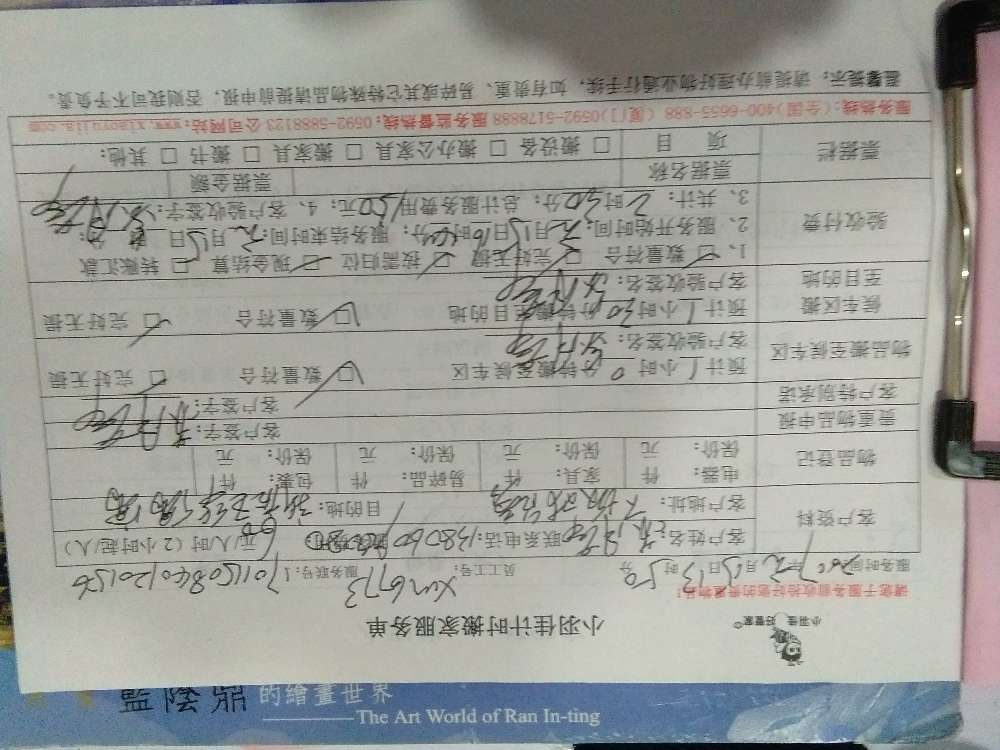 小羽佳 好管家
小羽佳计时搬家服务单
请您于服务前收拾好您的贵重物品！
服务时间：2017年2月15日13时50分 员工工号：XM673 服务联号：170115084012015
客户资料
客户姓名： 联系电话：138060 元/人/时（2小时起/人）
客户地址： 目的地：
物品登记
电器： 件 家具： 件 易碎品： 件 包裹： 件
保价： 元 保价： 元 保价： 元 保价： 元
贵重物品申报 客户签字：
客户特别承诺 客户签字：
物品搬至候车区
预计1小时0分钟搬至候车区 ☑数量符合 ☑完好无损
客户验收签名：
候车区搬至目的地
预计1小时30分钟搬至目的地 ☑数量符合 ☑完好无损
客户验收签名：
验收付费
1、☑数量符合 ☑完好无损 ☑按需归位 ☑现金结算 ☐转账汇款
2、服务开始时间：2月15日 时 分；服务结束时间：2月15日 时 分；
3、共计：2时30分；总计服务费用150元；4、客户验收签字：
票据栏
票据名称 票据金额
项目 ☐搬设备 ☐搬办公家具 ☐搬家具 ☐搬书 ☐其他：
服务热线：(全国)400-6655-888 (厦门)0592-5178888 服务监督热线：0592-5888123 公司网站：www.xiaoyujia.com
温馨提示：请提前办理好物业通行手续，如有贵重、易碎或其它特殊物品请提前申报，否则我司可不予负责。
藍陰鼎的繪畫世界
The Art World of Ran In-ting